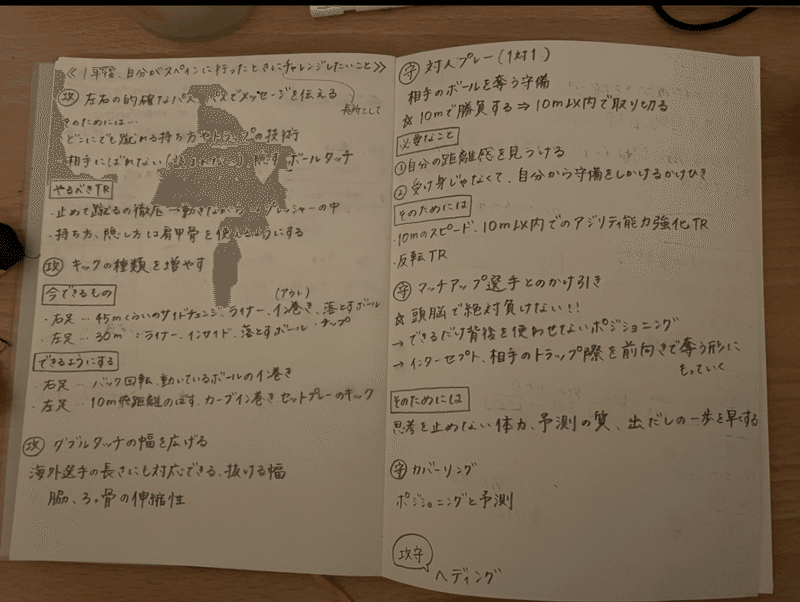 ≪1年後、自分がスペインに行ったときにチャレンジしたいこと≫
攻 左右の的確なパス パスでメッセージを伝える
長所として
そのためには…
どこにでも蹴れる持ち方やトラップの技術
相手にしばれない 隠す ボールタッチ
やるべきTR
・止めて蹴るの徹底→動きながら プレッシャーの中
・持ち方、隠し方は肩甲骨を使えるようにする
攻 キックの種類を増やす
今できるもの
(アウト)
・右足 … 45mくらいのサイドチェンジ、ライナー、イン巻き、落とすボール
・左足 … 30m ライナー、インサイド、落とすボール チップ
できるようにする
・右足 … バック回転、動いているボールのイン巻き
・左足 … 10m飛距離のばす、カーブイン巻き セットプレーのキック
攻 ダブルタッチの幅を広げる
海外選手の長さにも対応できる、抜ける幅
脇、ろっ骨の伸縮性
守 対人プレー(1対1)
相手のボールを奪う守備
☆10mで勝負する⇒10m以内で取り切る
必要なこと
①自分の距離感を見つける
②受け身じゃなくて、自分から守備をしかけるかけひき
そのためには
・10mのスピード、10m以内でのアジリティ能力強化TR
・反転TR
守 マッチアップ選手とのかけ引き
☆頭脳で絶対負けない!!
→できるだけ背後を使わせないポジショニング
→インターセプト、相手のトラップ際を前向きで奪う形に
もっていく
そのためには
思考を止めない体力、予測の質、出だしの一歩を早くする
守 カバーリング
ポジショニングと予測
攻守
ヘディング